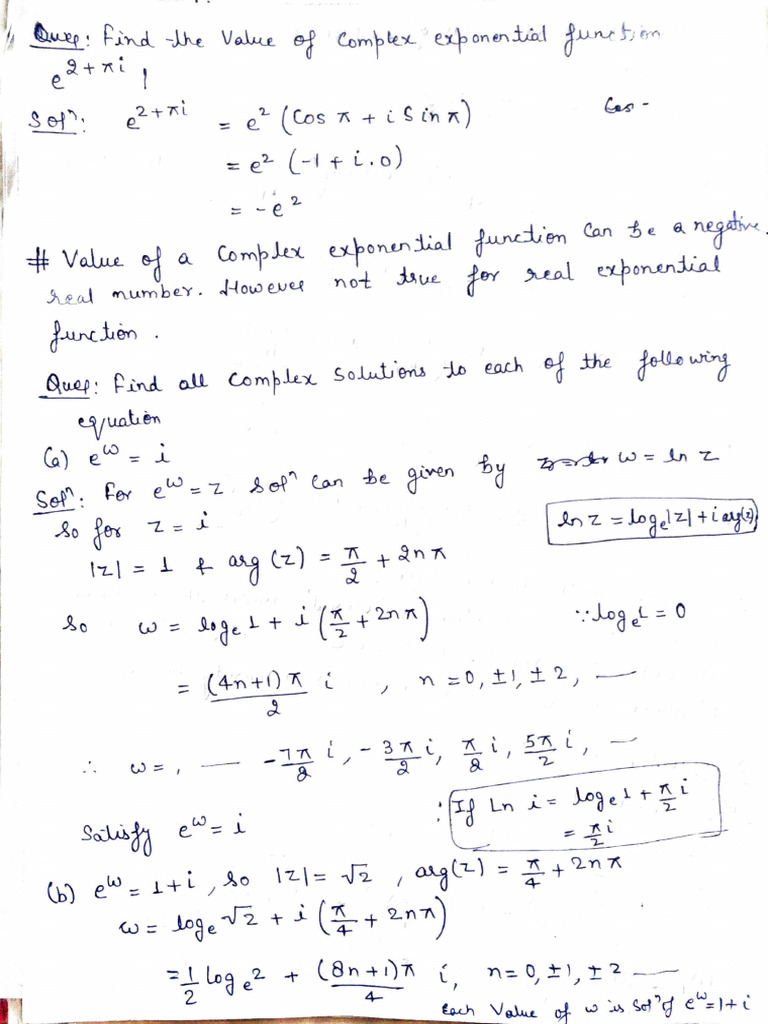 Ques: Find the Value of Complex exponential function
e^{2+πi} !
Solⁿ: e^{2+πi} = e² (Cos π + i Sin π)
Cos -
= e² (-1 + i.0)
= -e²
# Value of a Complex exponential function Can be a negative
real number. However not true for real exponential
function.
Ques: Find all Complex Solutions to each of the following
equation
(a) e^ω = i
Solⁿ: For e^ω = z Solⁿ Can be given by ω = ln z
So for z = i
ln z = logₑ|z| + i arg(z)
|z| = 1 & arg (z) = π/2 + 2nπ
So ω = logₑ1 + i (π/2 + 2nπ) ∵ logₑ1 = 0
= (4n+1)π/2 i , n = 0, ±1, ±2, —
∴ ω = , — -7π/2 i, -3π/2 i, π/2 i, 5π/2 i, —
Satisfy e^ω = i
: If Ln i = logₑ1 + π/2 i
= π/2 i
(b) e^ω = 1+i , So |z| = √2 , arg(z) = π/4 + 2nπ
ω = logₑ√2 + i (π/4 + 2nπ)
= 1/2 logₑ2 + (8n+1)π/4 i, n = 0, ±1, ±2 —
Each Value of ω is Solⁿ of e^ω = 1+i